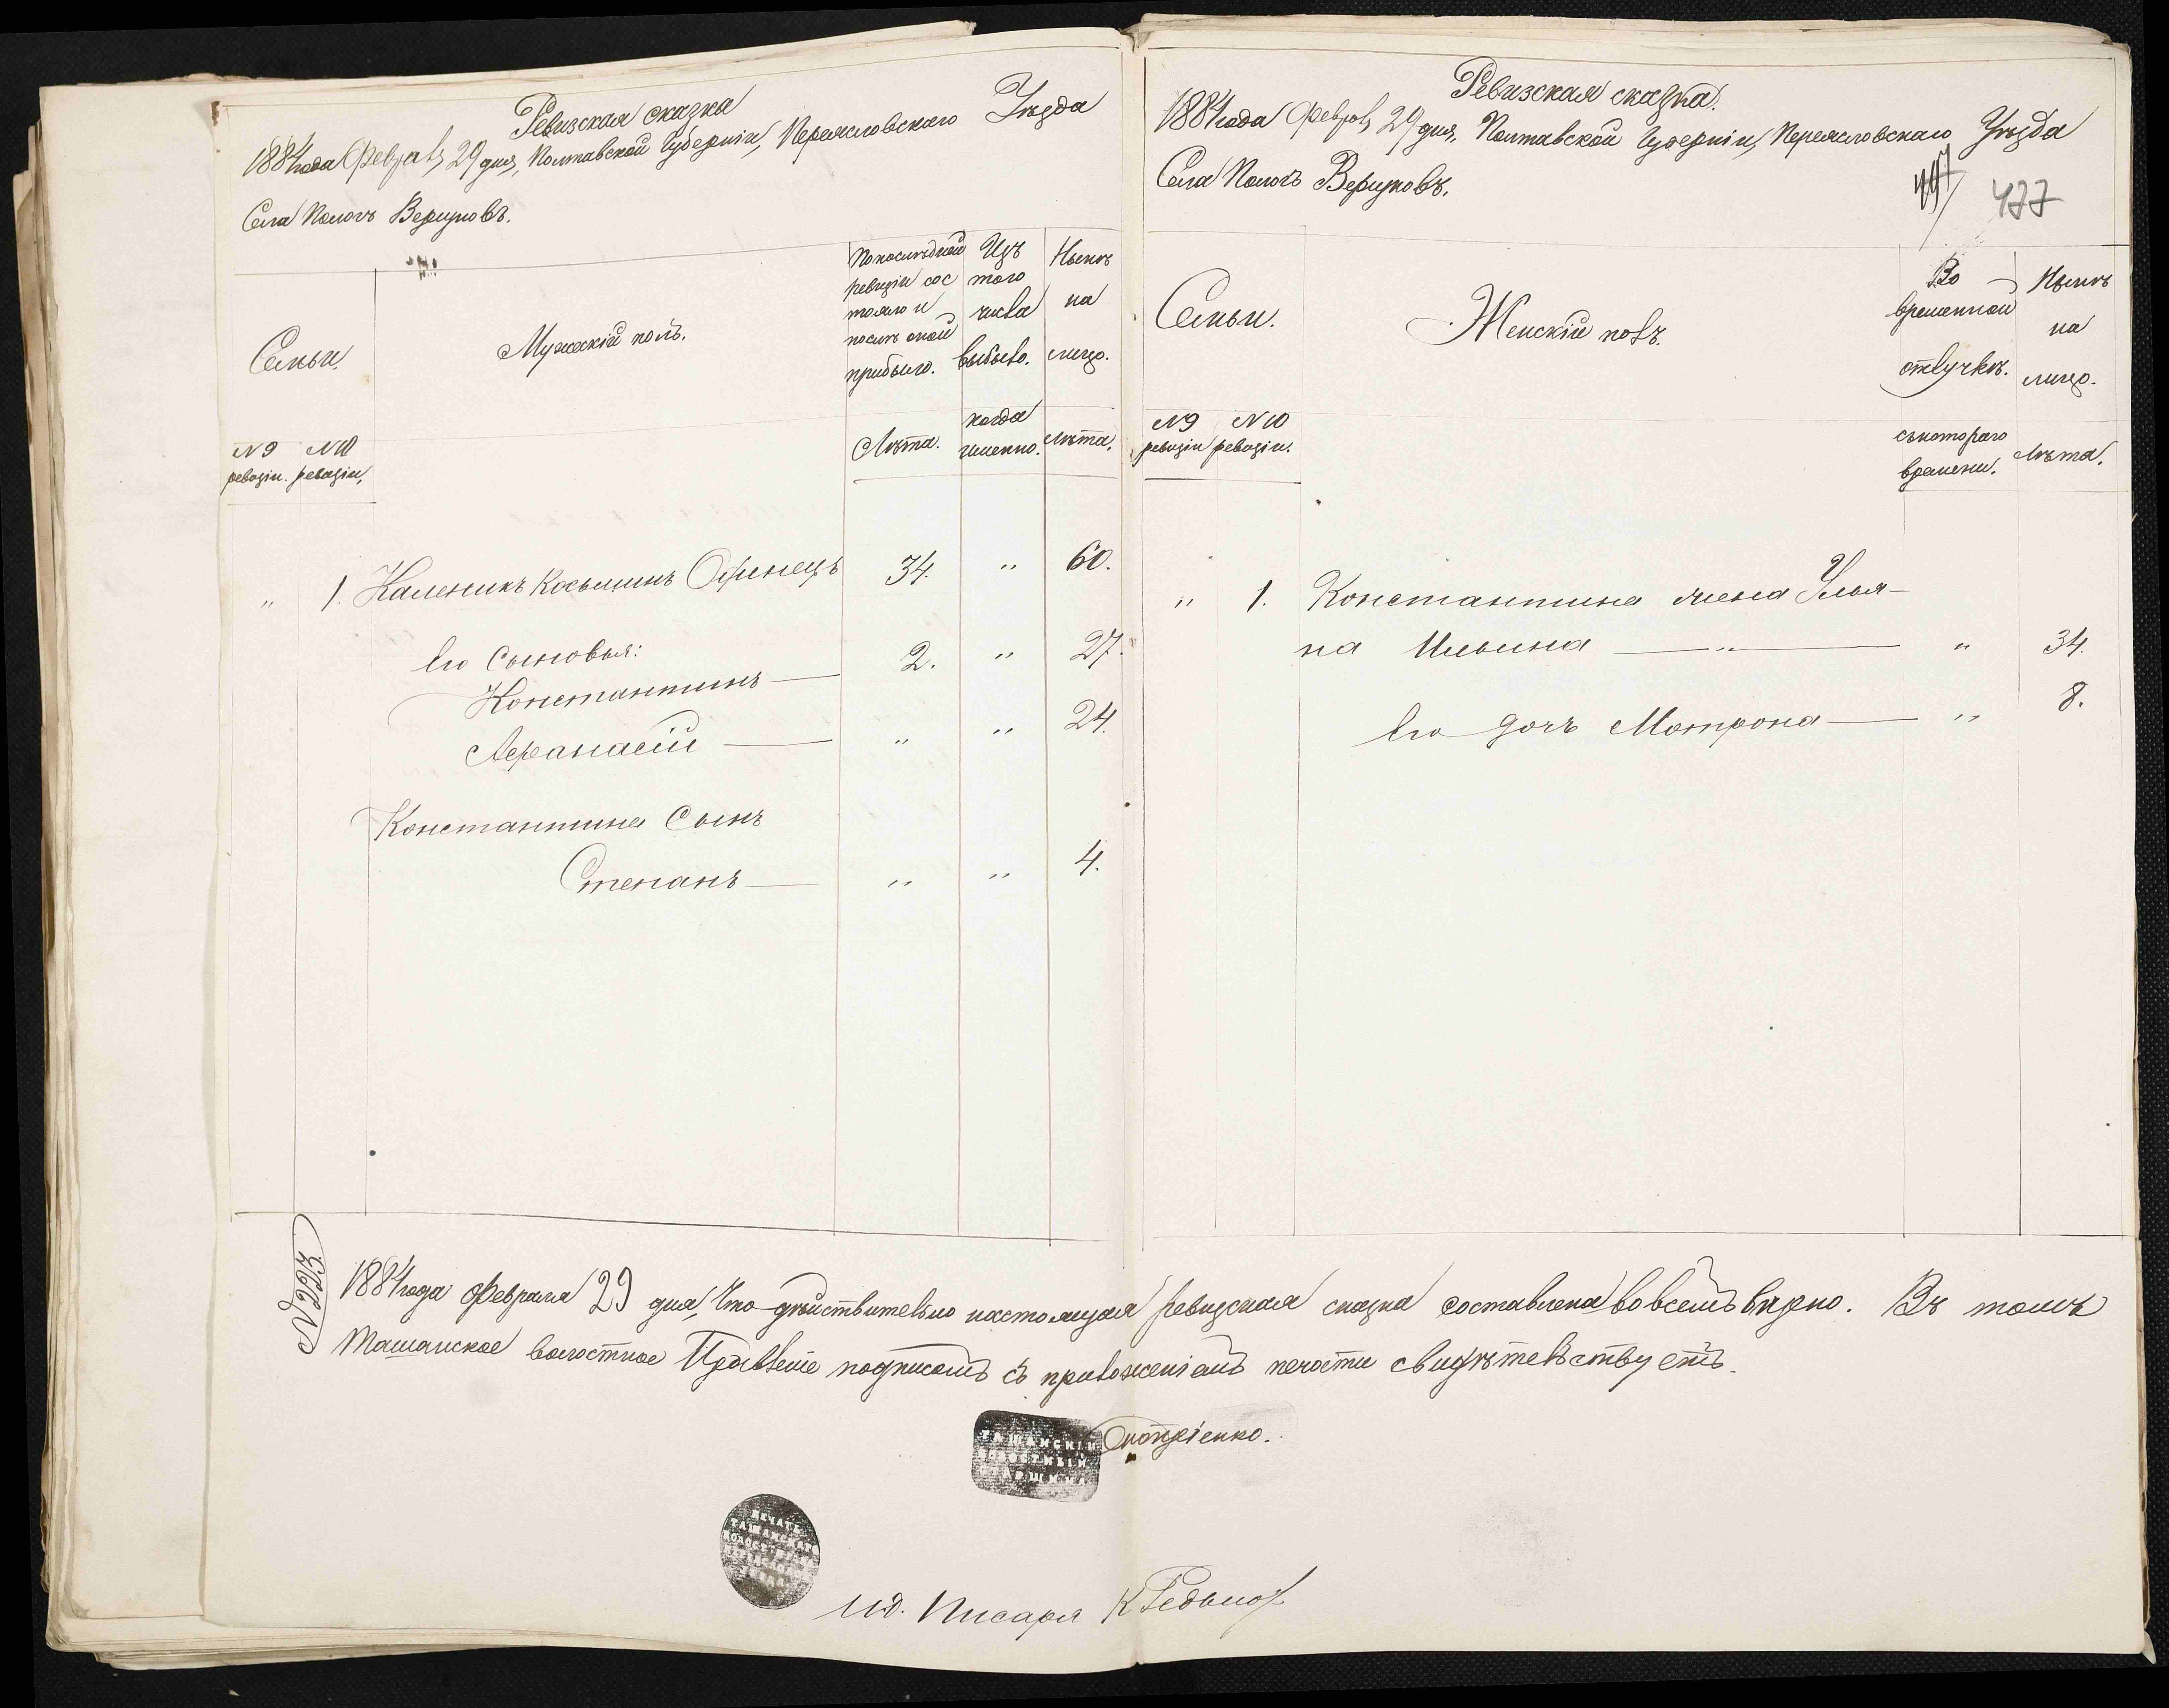 Ревизская сказка
1884 года Февраля 29 дня, Полтавской Губерніи, Переясловскаго Уѣзда
Села Пологъ Вергуновъ.
Семьи.
Мужескій полъ.
По последней
ревизіи сос
тояло и
послѣ оной
прибыло.
Изъ
того
числа
выбыло.
Нынѣ
на
лицо.
N 9 N 10
ревизіи. ревизіи.
Лѣта.
когда
именно.
Лѣта.
" 1. Каленикъ Косьминъ Офинецъ 34. " 60.
Его Сыновья:
Константинъ — 2. " 27.
Афанасій — " " 24.
Константина Сынъ
Степанъ — " " 4.
Ревизская сказка.
1884 года Февраля 29 дня, Полтавской Губерніи, Переясловскаго Уѣзда
Села Пологъ Вергуновъ.
477
Семьи.
Женскій полъ.
Во
временной
отлучкѣ.
Нынѣ
на
лицо.
N 9 N 10
ревизіи ревизіи.
съ котораго
времени.
Лѣта.
" 1. Константина жена Улья-
на Ильина — " — " 34.
Его дочь Мотрона — " 8.
N 223
1884 года Февраля 29 дня, Что дѣйствительно настоящая ревизская сказка составлена во всемъ вѣрно. Въ томъ
Ташанское волостное Правленіе подписомъ съ приложеніемъ печати свидѣтельствуетъ.
ТАШАНСКІЙ
ВОЛОСТНЫЙ
СТАРШИНА
ПЕЧАТЬ
ТАШАНСКАГО
ВОЛОСТНАГО
И.д. Писаря